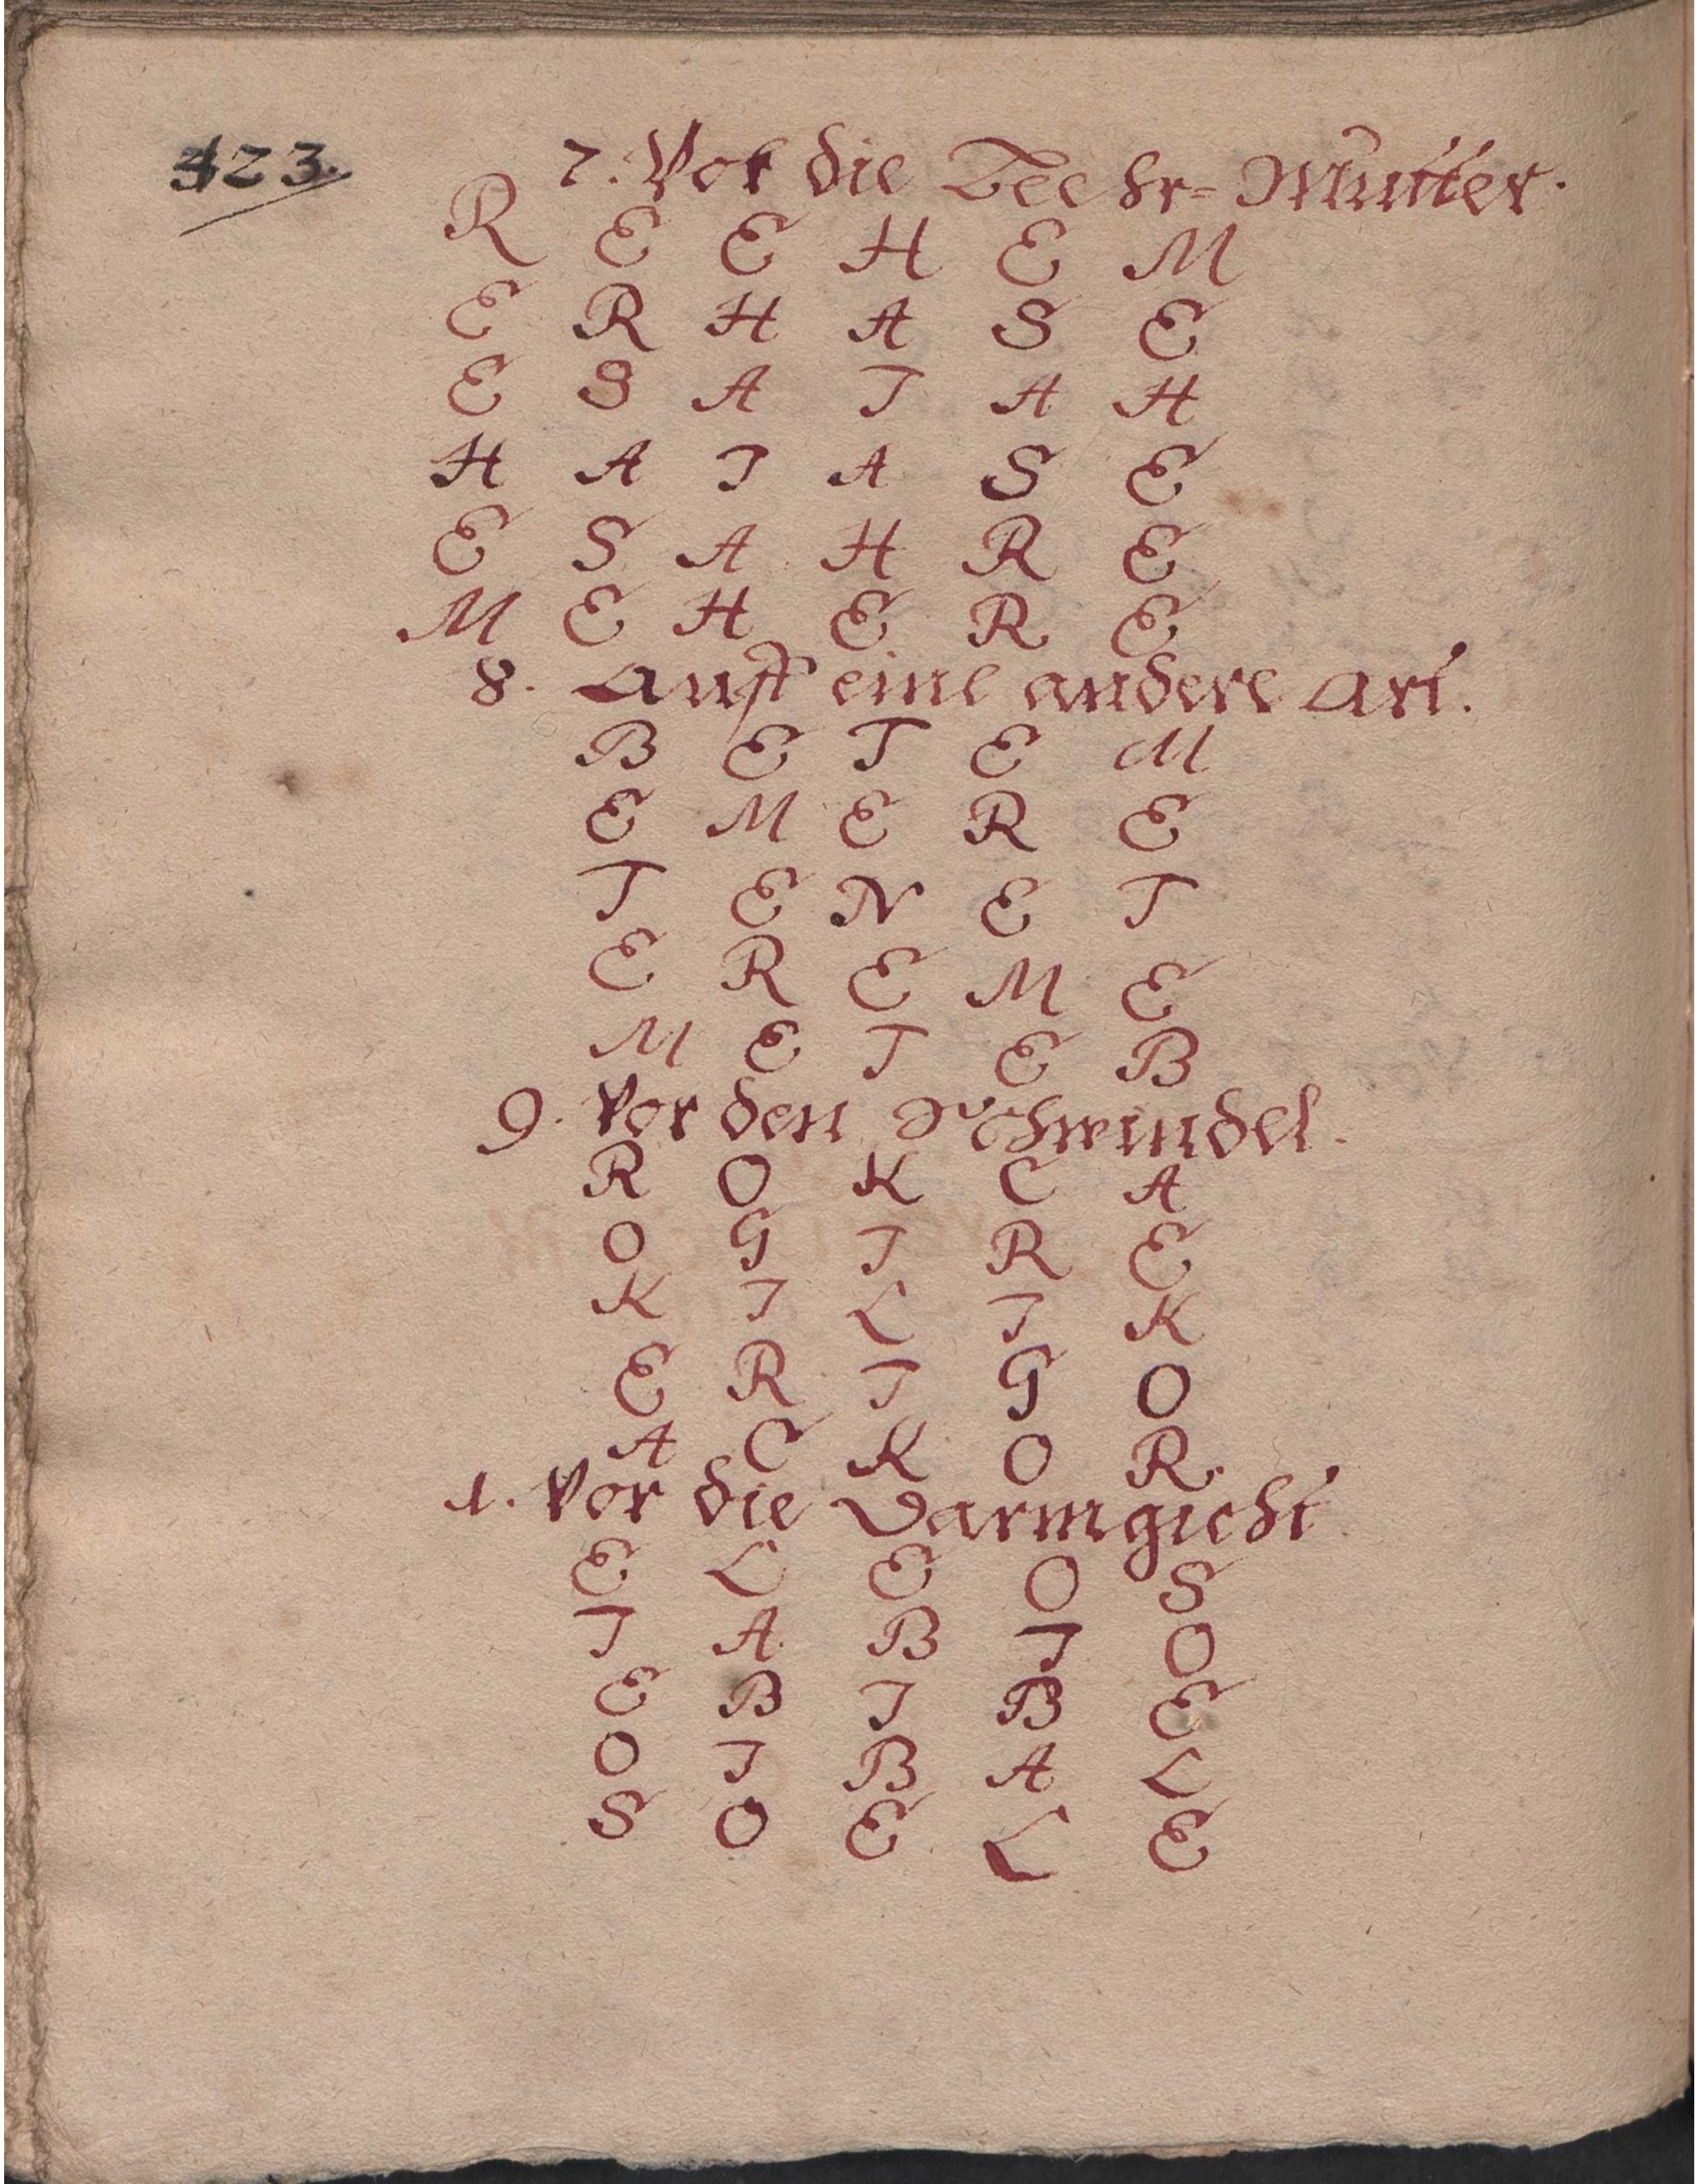 423.
7. Vor die Beehr-Mutter.
R E E H E M
E R H A S E
E S A T A H
H A T A S E
E S A H R E
M E H E R E
8. Auff eine andere Art.
B E T E M
E M E R E
T E N E T
E R E M E
M E T E B
9. Vor den Schwindel.
R O K C A
O G I R E
K I L I K
E R I G O
A C K O R.
1. Vor die Darmgicht
E L E O S
I A B I O
E B I B E
O I B A L
S O E L E